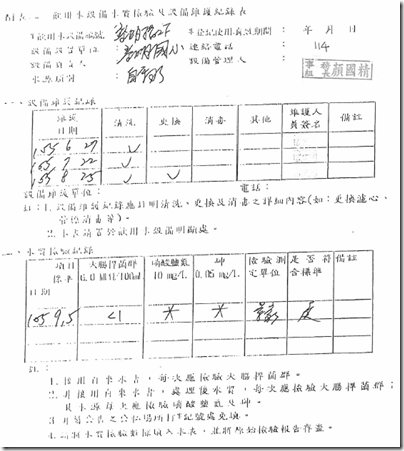 附表二 飲用水設備水質檢驗及設備維護紀錄表
年 月 日
設備設置單位:
國小
連絡電話: 114
設備負責人:
設備管理人:
水源類別: 自來水
一、設備維護紀錄
維護日期 清洗 更換 消毒 其他 維護人員簽名 備註
105 6 27 ✓
105 7 22 ✓
105 8 25 ✓ ✓
設備維護單位: 電話:
註:1.設備維護紀錄應註明清洗、更換及消毒之詳細內容(如:更換濾心、
管線消毒等)。
2.本表請置於飲用水設備明顯處。
二、水質檢驗紀錄
項目 標準 日期 大腸桿菌群 6.0 MPN/100mL 硝酸鹽氮 10 mg/L 砷 0.05 mg/L 檢驗測定單位 是否符合標準 備註
105 9.5 <1 是
註:
1.使用自來水者,每次應檢驗大腸桿菌群。
2.非使用自來水者,處理後水質,每次應檢驗大腸桿菌群;
其水源每次應檢驗硝酸鹽氮及砷。
4.請將水質檢驗數據填入本表,並將原始檢驗報告存查。